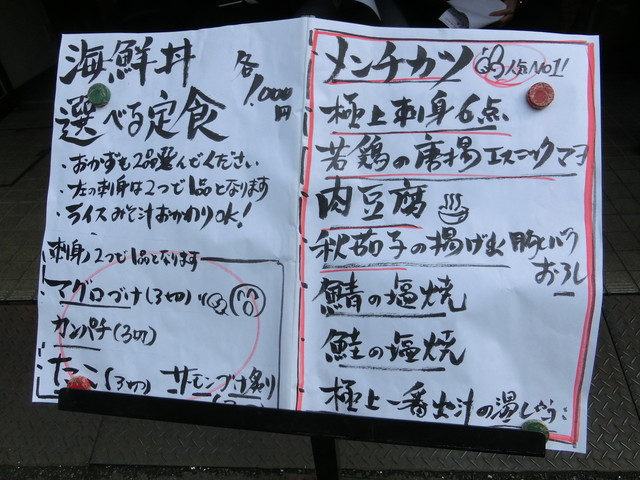 海鮮丼
各1,000円
選べる定食
・おかずを2品選んでください
・左の刺身は2つで1品となります
・ライスみそ汁おかわりOK!
刺身 2つで1品となります
マグロづけ(3切)
カンパチ(3切)
(3切) サーモンづけ炙り
メンチカツ 人気NO1!
極上刺身6点
若鶏の唐揚エスニックマヨ
肉豆腐
秋茄子の揚げ
おろし
鯖の塩焼
鮭の塩焼
極上一番出汁の湯